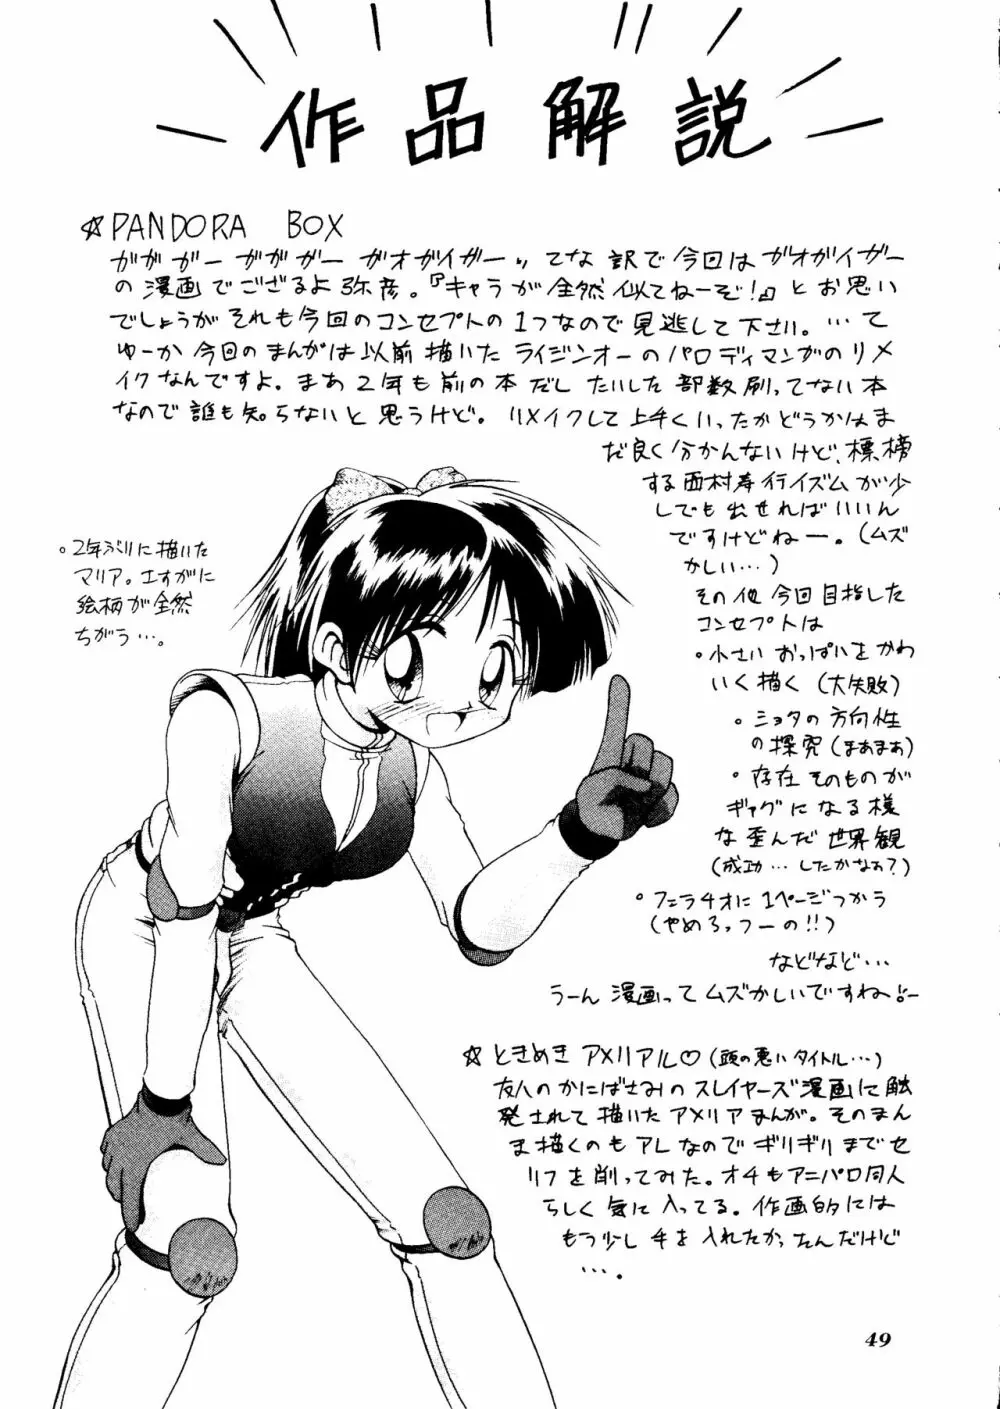 作品解説
☆PANDORA BOX
ガガガーガガガー ガオガイガー〃 てな訳で今回はガオガイガー
の漫画でござるよ弥彦。『キャラが全然似てねーぞ!』とお思い
でしょうがそれも今回のコンセプトの1つなので見逃して下さい。…て
ゆーか今回のまんがは以前描いたライジンオーのパロディマンガのリメ
イクなんですよ。まあ2年も前の本だしたいした部数刷ってない本
なので誰も知らないと思うけど。リメイクして上手くいったかどうかはま
だ良く分かんないけど、標榜
する西村寿行イズムが少
しでも出せればいいん
ですけどねー。(ムズ
かしい…)
その他今回目指した
コンセプトは
・小さいおっぱいをかわ
いく描く(大失敗)
・ショタの方向性
の探究(まあまあ)
・存在そのものが
ギャグになる様
な歪んだ世界観
(成功…したかなあ?)
・フェラチオに1ページつかう
(やめろっつーの!!)
などなど…
うーん漫画ってムズかしいですねー
・2年ぶりに描いた
マリア。さすがに
絵柄が全然
ちがう…。
☆ときめきアメリアル♡(頭の悪いタイトル…)
友人のかにばさみのスレイヤーズ漫画に触
発されて描いたアメリアまんが。そのまん
ま描くのもアレなのでギリギリまでセ
リフを削ってみた。オチもアニパロ同人
らしく気に入ってる。作画的には
もう少し手を入れたかったんだけど
…。
49